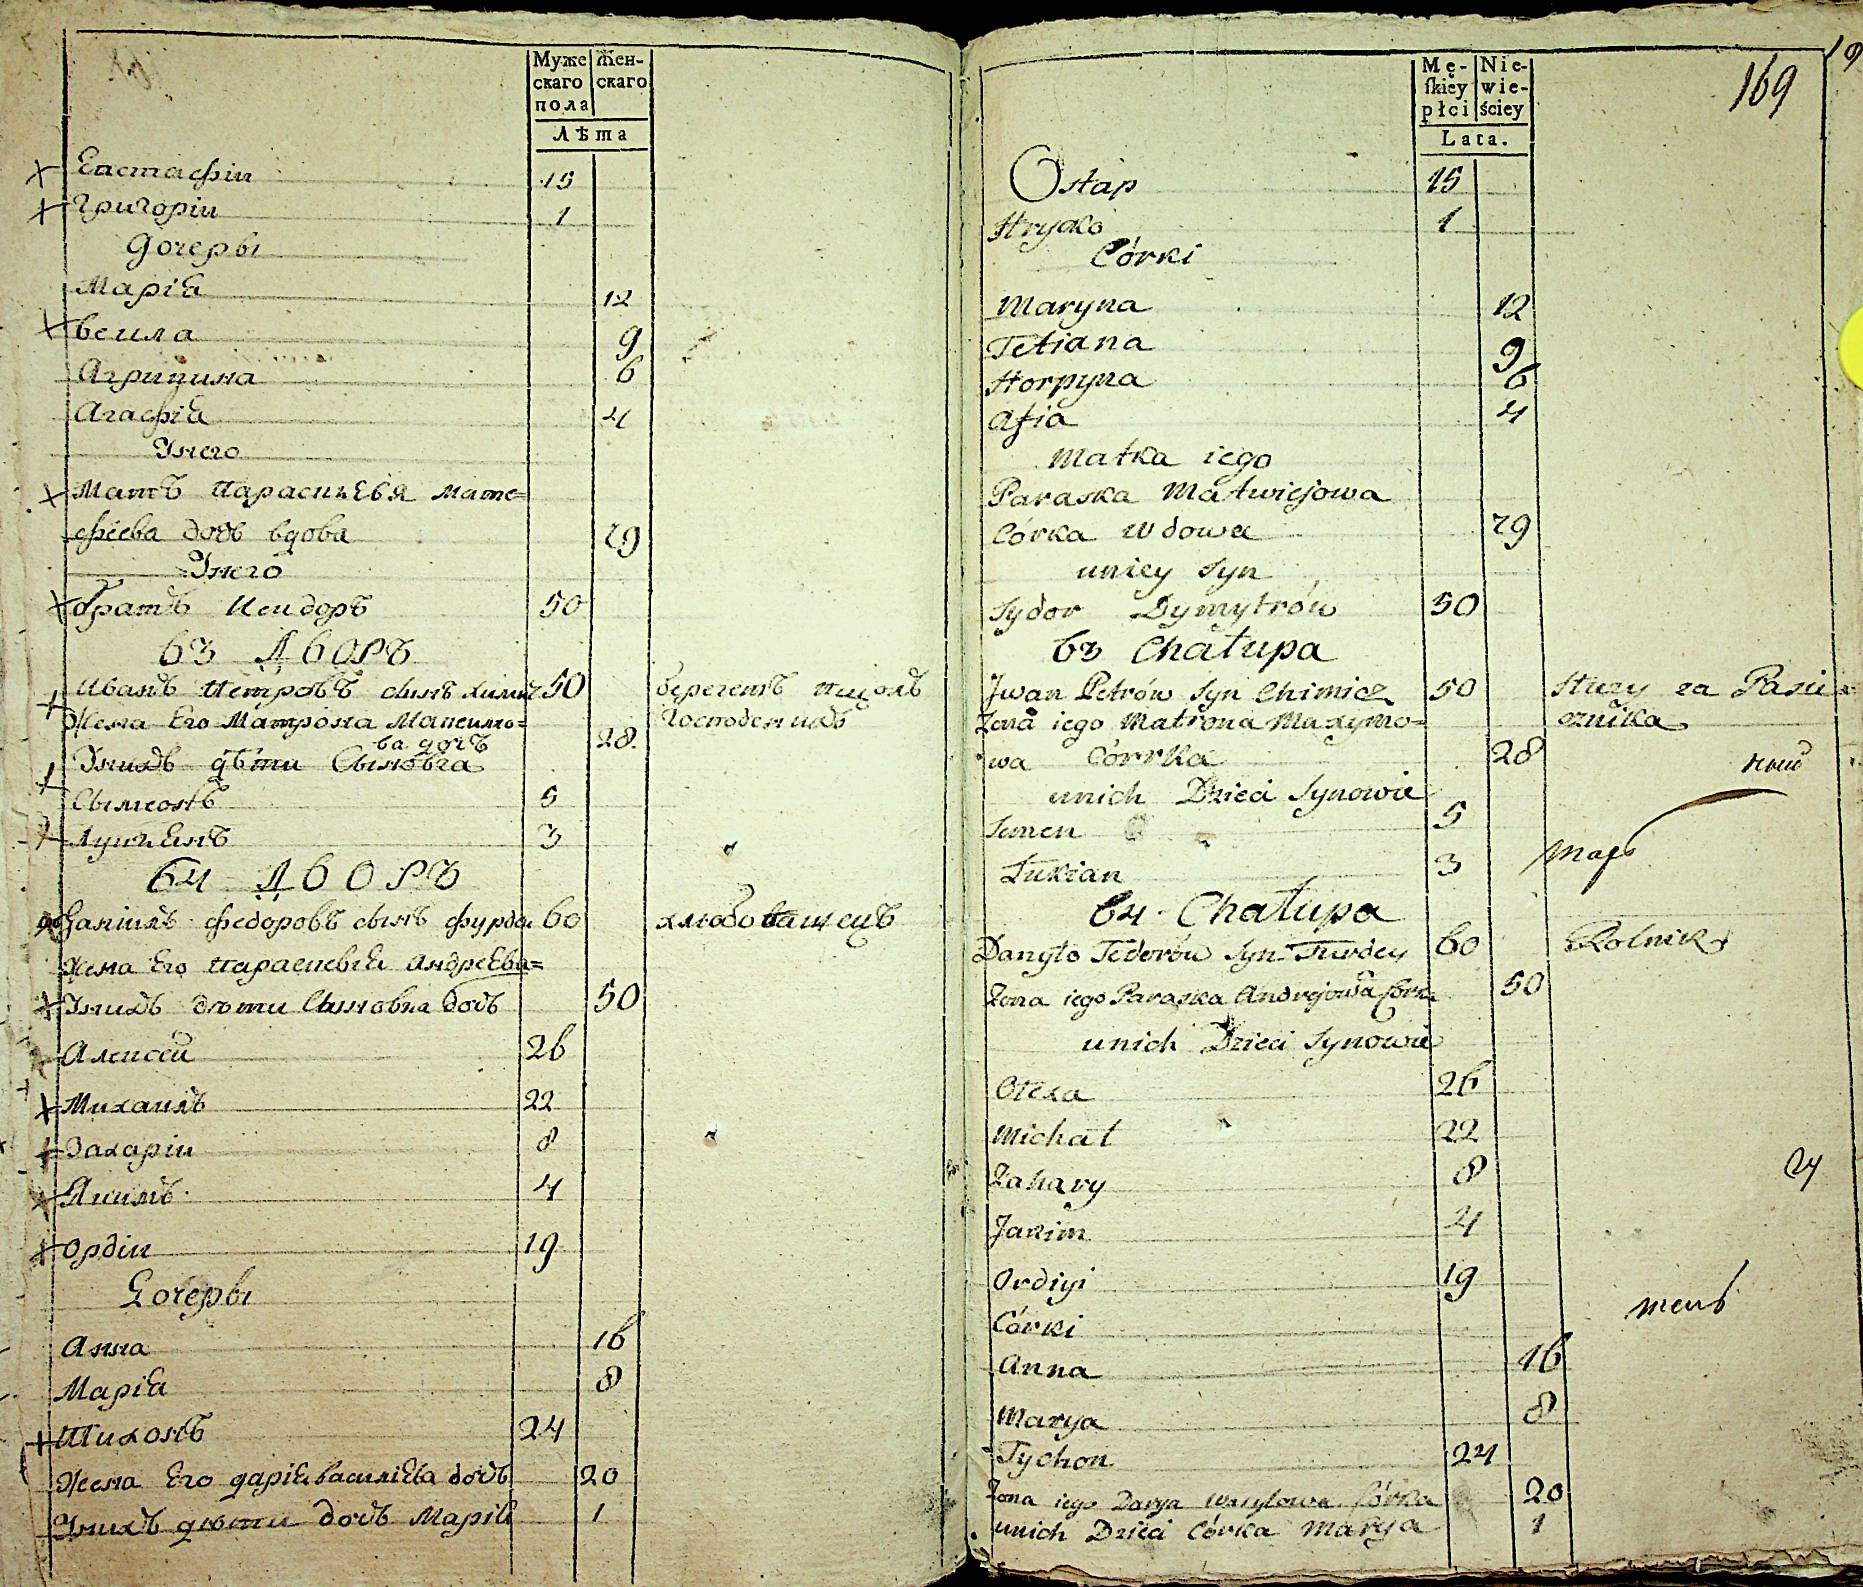 Муже
скаго
пола
Жен-
скаго
Лѣта
Евстафіи 15
Григоріи 1
Дочеры
Маріа 12
9
Агрипина 6
Агафіа 4
Унего
Мать Параскѣвѣя Мате=
фѣева дочь вдова 79
Унего
братъ Исидоръ 50
63 ДВОРЪ
Иванъ Петровъ сынъ Химич 50 береметъ пщолъ
Жена Его Матрона Максимо= Господских
ва дочь 28.
Унихъ дѣти Сыновья
Сымеонъ 5
Лукіянъ 3
64 ДВОРЪ
Данiилъ Федоровъ сынъ фурдей 60 хлѣбопашецъ
Жена Его Параскевіа Андреева=
Унихъ дѣти Сыновья дочь 50
Алексѣй 26
Михаилъ 22
Захаріи 8
Якимъ 4
Ордіи 19
Дочеры
Анна 16
Маріа 8
Тихонъ 24
Жена Его Даріа Василіева дочь 20
Унихъ дѣти дочь Маріа 1
Mę-
ſkiey
płci
Nie-
wie-
ściey
Lata.
169
Ostap 15
Hryćko 1
Córki
Maryna 12
Tetiana 9
Horpyna 6
Afia 4
Matka iego
Paraska Matwiejowa
Córka wdowa 79
uniey Syn
Sydor Dymytrów 50
63 Chałupa
Jwan Petrów Syn Chimicz 50 służy za Pasie
Zona iego Matrona Maxymo= cznika
wa Córka 28
unich Dzieci Synowie
Semen 5
Łukian 3
64. Chałupa
Danyło Fedorów Syn Furdey 60 Rolnik
Zona iego Paraska Andrejowa Córka 50
unich Dzieci Synowie
Olexa 26
Michał 22
Zahary 8
24
Jakim 4
Ordiyi 19
Córki
Anna 16
Marya 8
Tychon 24
Zona iego Darya Wasylowa Córka 20
unich Dzieci Córka Marya 1